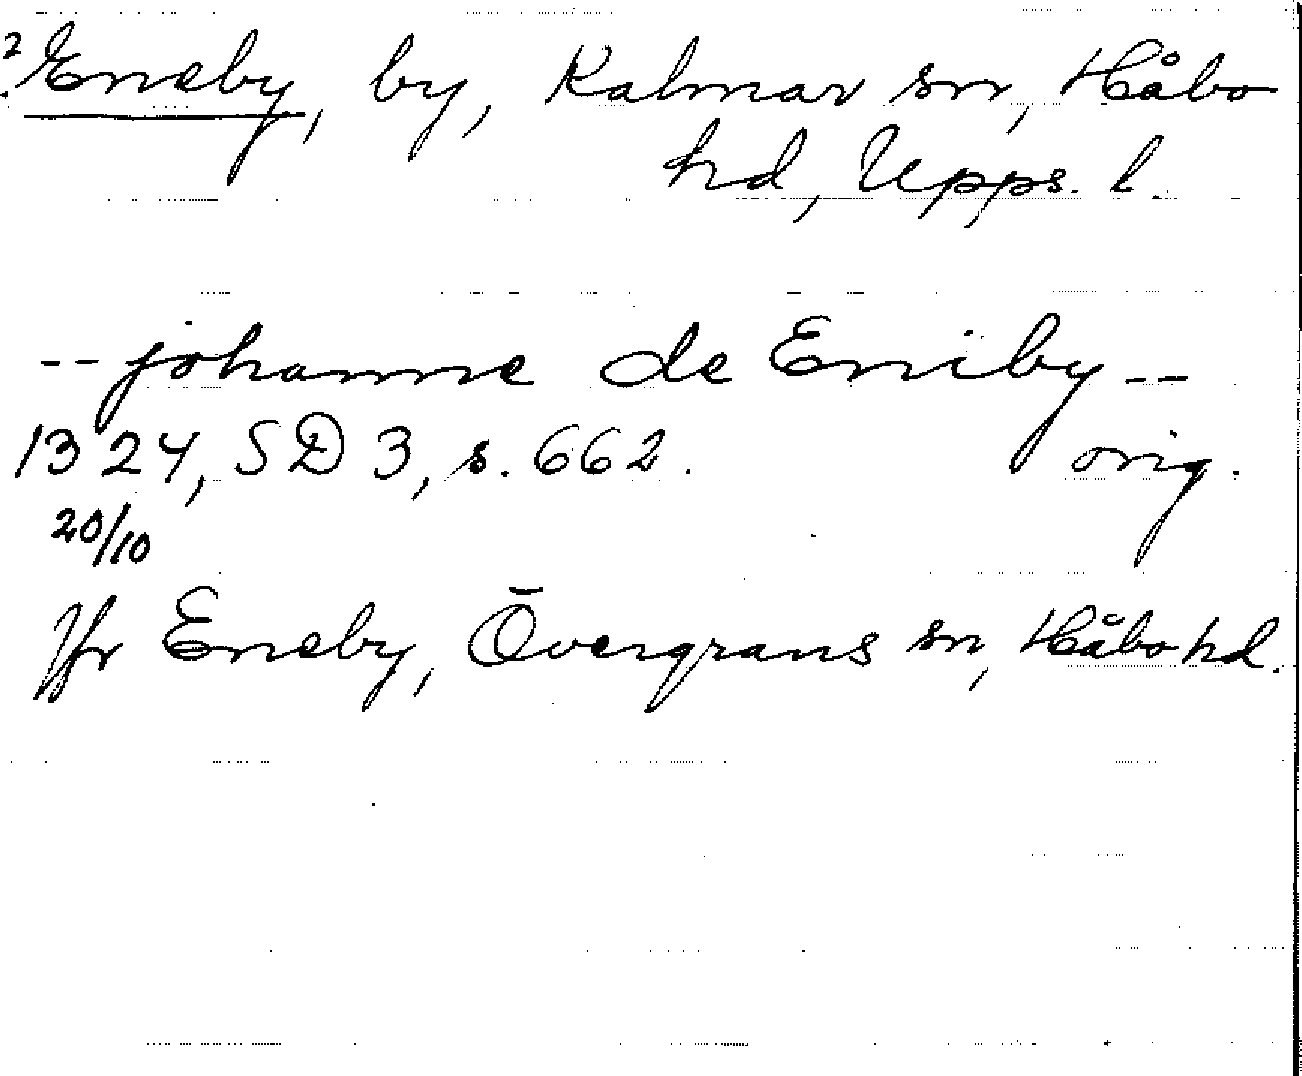 ? Eneby, by, Kalmar sn, Håbo
hd, Upps. l.
-- johanne de Eniby --
1324, SD 3, s. 662. orig.
20/10
Jfr Eneby, Övergrans sn, Håbo hd.